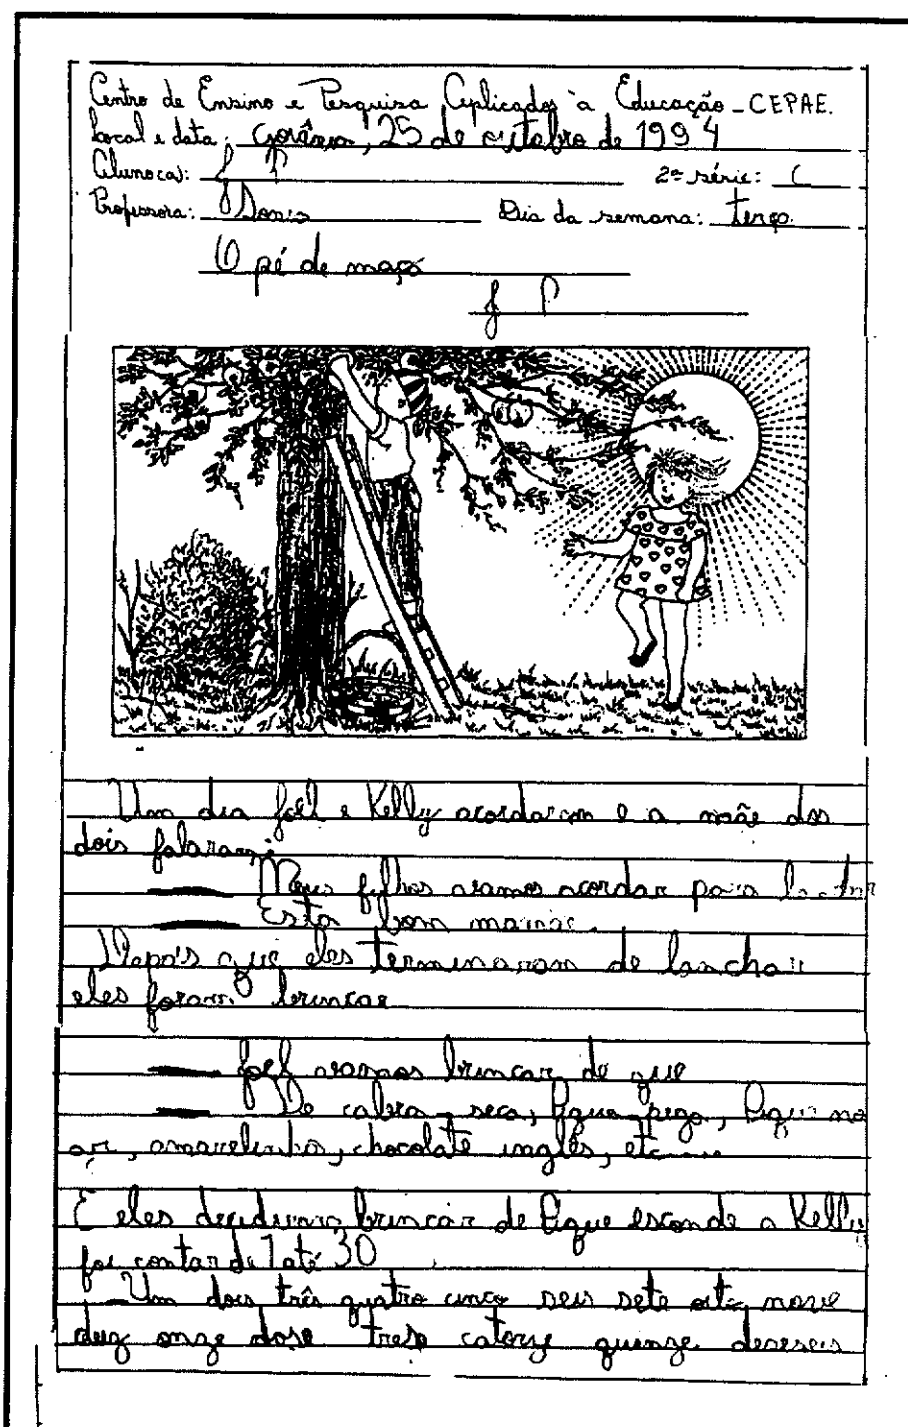 Centro de Ensino e Pesquisa Aplicados à Educação - CEPAE.
Local e data: Goiânia, 25 de outubro de 1994
Aluno(a): J P 2ª série: C
Professora: Dia da semana: terça
O pé de maçã
J P
Um dia Joel e Kelly acordaram e a mãe dos
dois falaram:
— Meus filhos vamos acordar para lanchar
— Esta bom mamãe.
Depois que eles terminaram de lanchar
eles foram brincar
— Joel vamos brincar de que
— De cabra-seca, Pique-pega, Pique no
ar, amarelinha, chocolate inglês, etc
E eles decidiram brincar de Pique esconde a Kelly
foi contar de 1 até 30
— Um dois três quatro cinco seis sete oito nove
dez onze dose trese catorze quinze deseseis